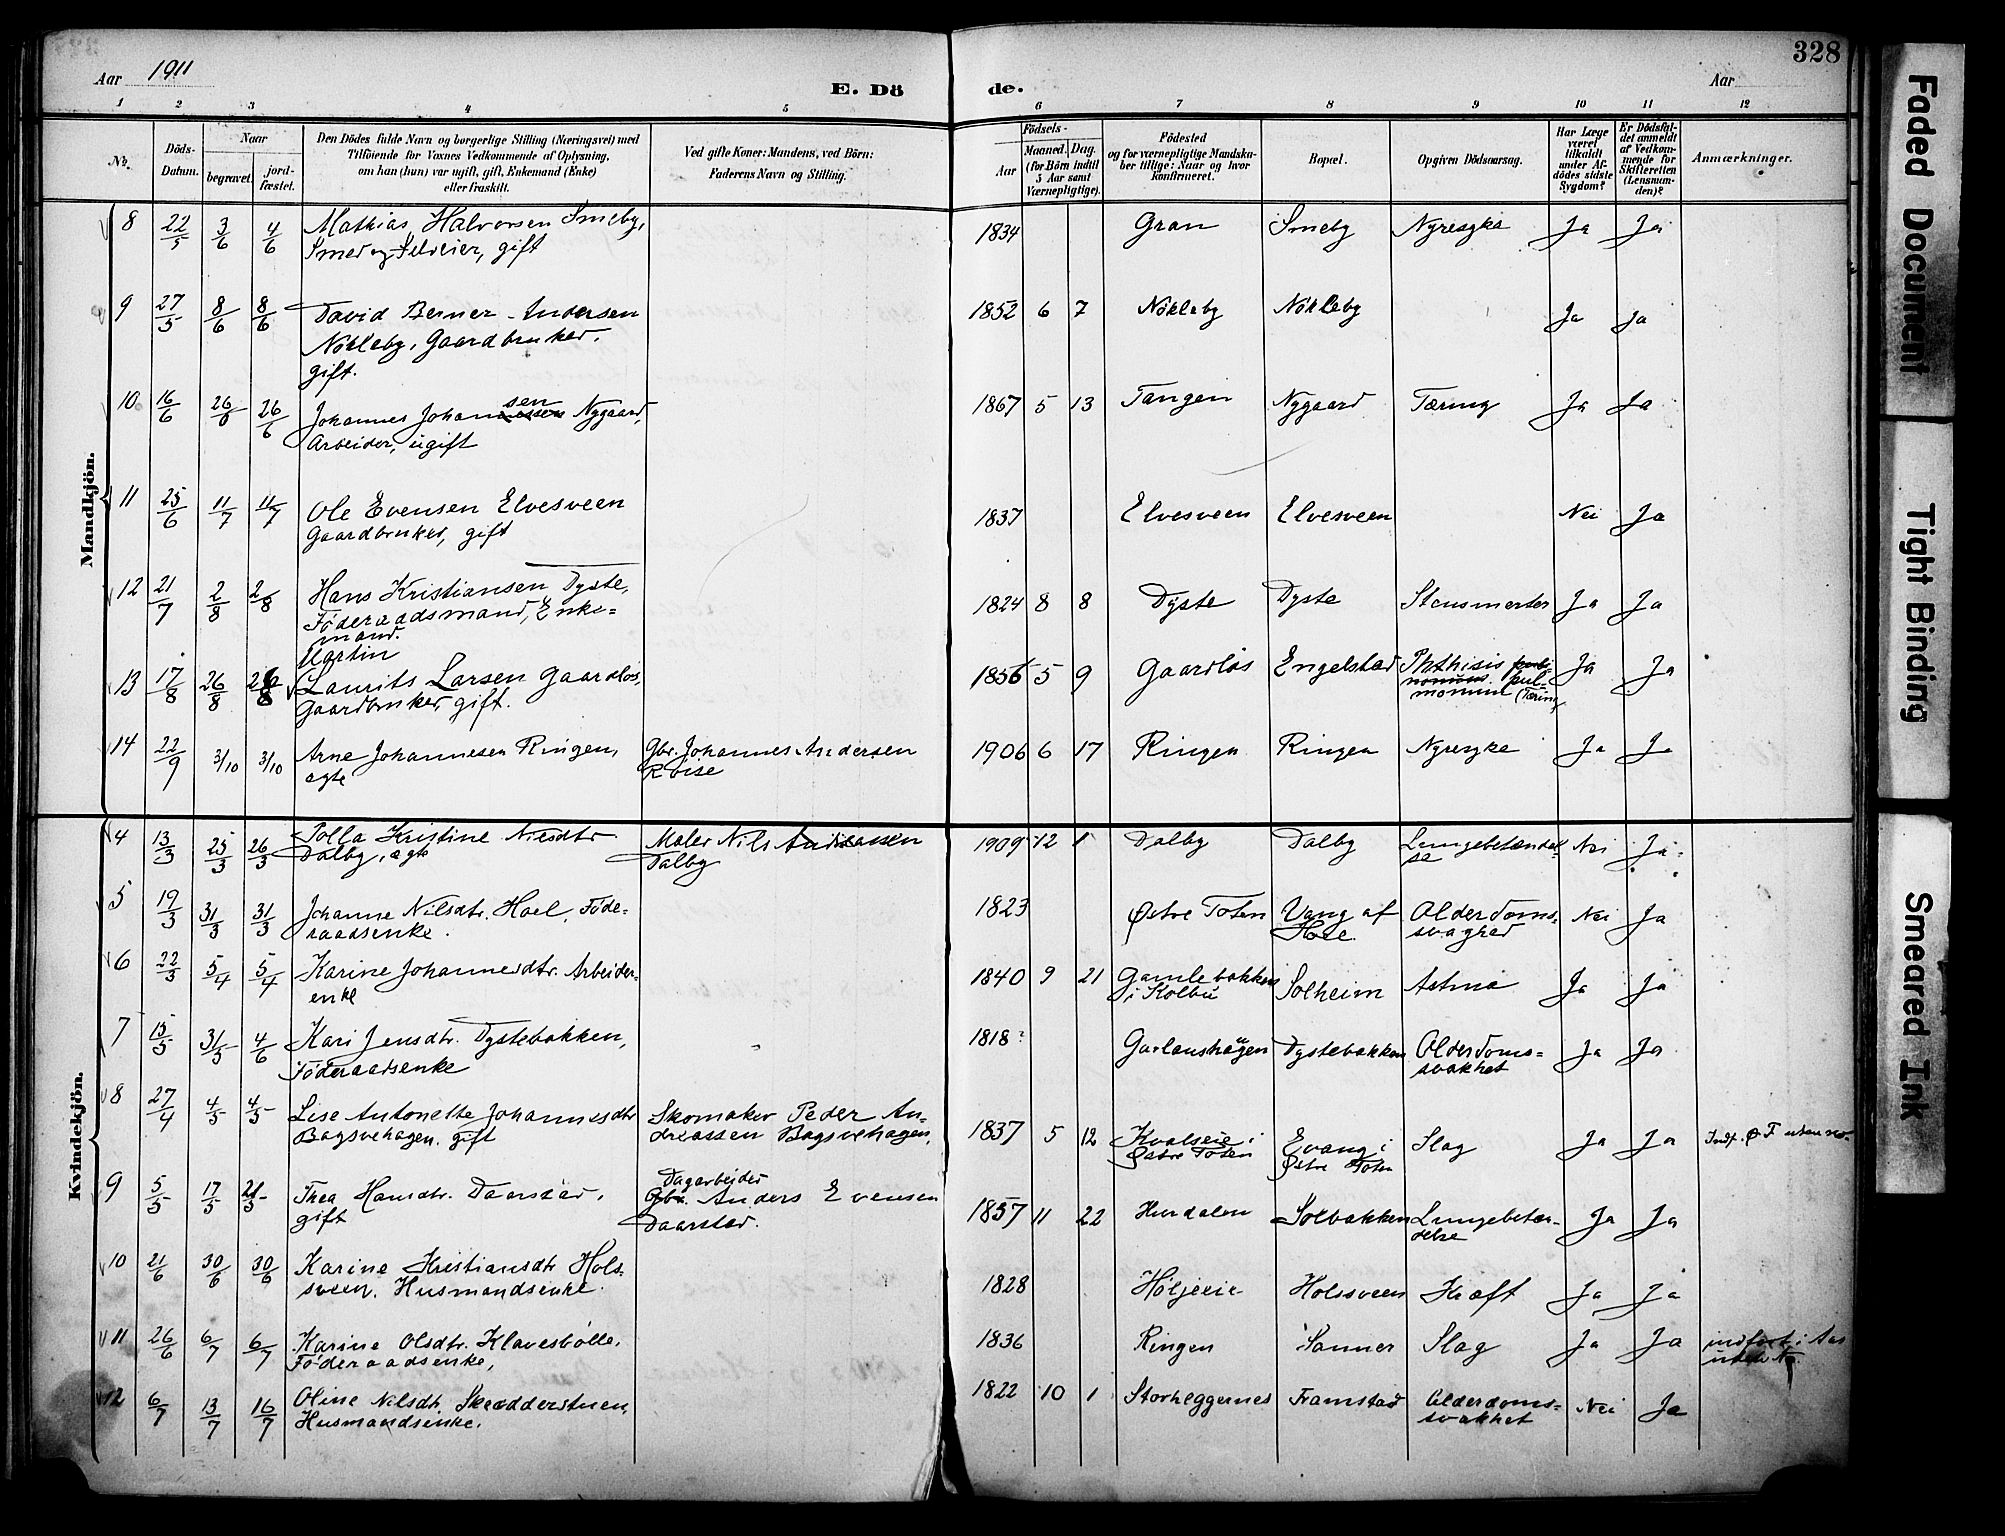 328
Aar 1911
E. Dö
de.
Aar
1 2 3 4 5 6 7 8 9 10 11 12
No.
Döds-
Datum.
Naar
begravet.
jord-
fæstet.
Den Dödes fulde Navn og borgerlige Stilling (Næringsvei) med
Tilföiende for Voxnes Vedkommende af Oplysning,
om han (hun) var ugift, gift, Enkemand (Enke)
eller fraskilt.
Ved gifte Koner: Mandens, ved Börn:
Faderens Navn og Stilling.
Födsels-
Aar
Maaned. Dag.
(for Börn indtil
5 Aar samt
Værnepligtige).
Födested
og for værnepligtige Mandska-
ber tillige: Naar og hvor
konfirmeret.
Bopæl.
Opgiven Dödsaarsag.
Har Læge
været
tilkaldt
under Af-
dödes sidste
Sygdom?
Er Dödsfal-
det anmeldt
af Vedkom-
mende for
Skifteretten
(Lensman-
den)?
Anmærkninger.
Mandkjön.
8 22/5 3/6 4/6 Mathias Halvorsen Smeby, 1834 Gran Smeby Nyresyke Ja Ja
Smed og Selveier, gift
9 27/5 8/6 8/6 David Berner Andersen 1852 6 7 Nökleby Nökleby Ja Ja
Nökleby, Gaardbruker,
gift.
10 16/6 26/6 26/6 Johannes Johansen Nygaard, 1867 5 13 Tangen Nygaard Tæring Ja Ja
Arbeider, ugift
11 25/6 11/7 11/7 Ole Evensen Elvesveen 1837 Elvesveen Elvesveen Nei Ja
Gaardbruker, gift
12 21/7 2/8 2/8 Hans Kristiansen Dyste, 1824 8 8 Dyste Dyste Stensmerter Ja Ja
Föderaadsmand, Enke=
mand.
Martin
13 17/8 26/8 26/8 Laurits Larsen Gaardlös, 1856 5 9 Gaardlös Engelstad Phthisis pul-
Gaardbruker, gift. monum (Tæring) Ja Ja
14 22/9 3/10 3/10 Arne Johannesen Ringen, Gbr. Johannes Andersen 1906 6 17 Ringen Ringen Nyresyke Ja Ja
ægte Roise
Kvindekjön.
4 13/3 25/3 26/3 Polla Kristine Nilsdtr Maler Nils Andreassen 1909 12 1 Dalby Dalby Lungebetændel= Nei Ja
Dalby, ægte Dalby se
5 19/3 31/3 31/3 Johanne Nilsdtr. Hoel, Föde= 1823 Østre Toten Vang af Alderdoms= Nei Ja
raadsenke. Hoel svaghed
6 22/3 5/4 5/4 Karine Johannesdtr. Arbeider= 1840 9 21 Gamlebakken Solheim Astma Ja Ja
enke i Kolbu
7 15/5 31/5 4/6 Kari Jensdtr. Dystebakken, 1818 Garlaushagen Dystebakken Alderdoms= Ja Ja
Föderaadsenke svakhet
8 27/4 4/5 4/5 Lise Antonette Johannesdtr Skomaker Peder An= 1837 5 12 Kvalseie i Evang i Slag Ja Ja Indf. Ø T uten no.
Bagsvehagen, gift dreassen Bagsvehagen, Østre Toten Østre Toten
9 5/5 17/5 21/5 Thea Hansdtr. Daarstad, Dagarbeider
gift Gbr. Anders Evensen 1857 11 22 Hurdalen Solbakken Lungebetæn= Ja Ja
Daarstad. delse
10 21/6 30/6 30/6 Karine Kristiansdtr Hols= 1828 Höljeeie Holssveen Kræft Ja Ja
sveen, Husmandsenke.
11 26/6 6/7 6/7 Karine Olsdtr. Klavesbölle, 1836 Ringen Sanner Slag Ja Ja indfört i Aas
Föderaadsenke, uten No.
12 6/7 13/7 16/7 Oline Nilsdtr. Skrædderstuen, 1822 10 1 Storheggernes Framstad Alderdoms= Nei Ja
Husmandsenke. svakhet
Faded Document
Tight Binding
Smeared Ink